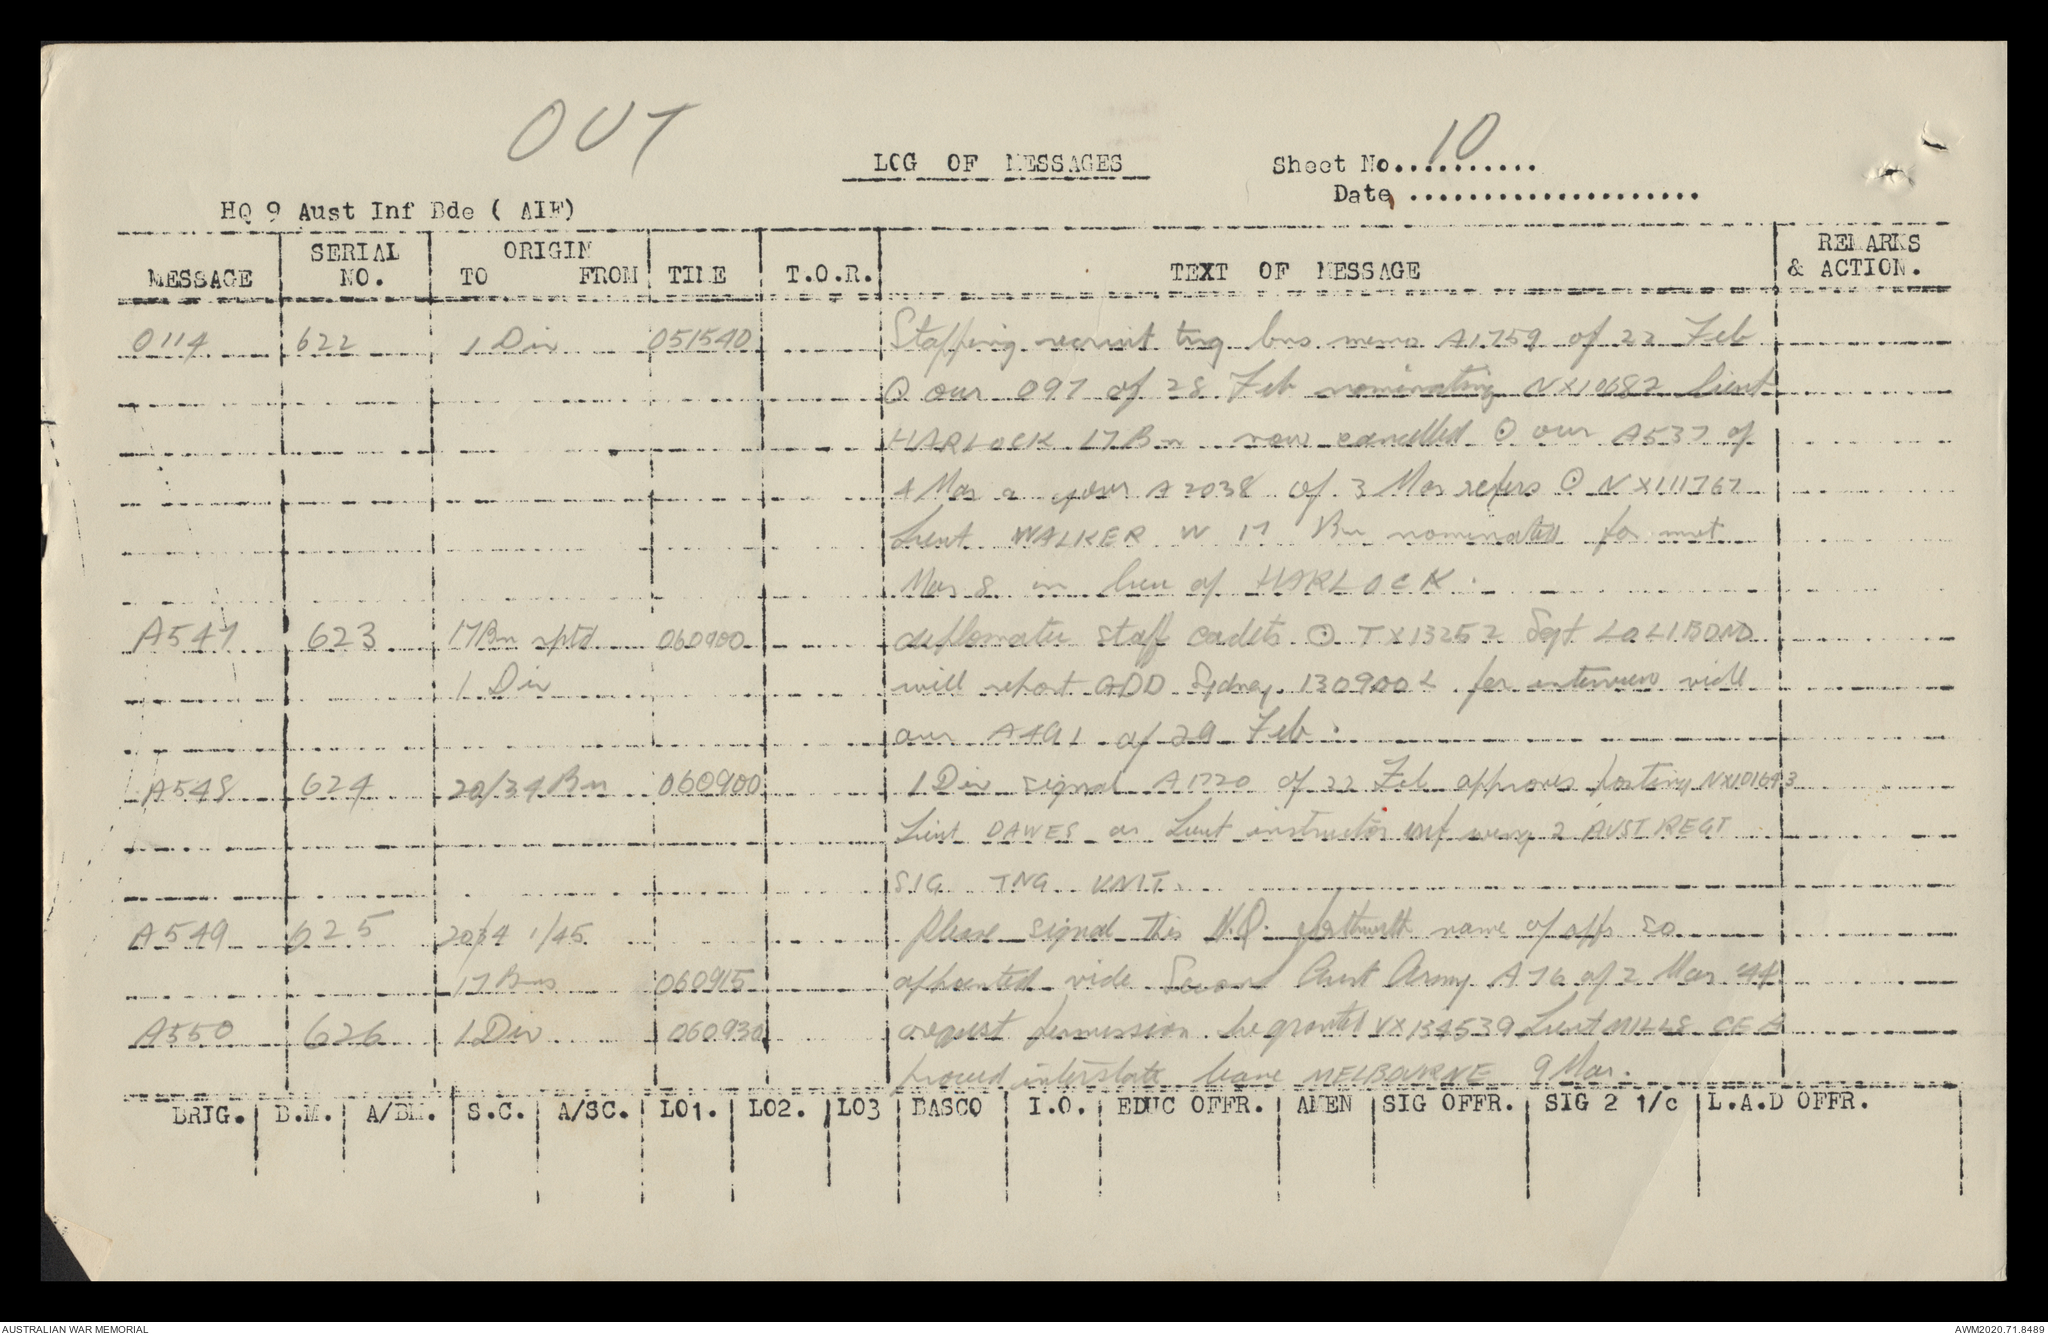 OUT
LOG OF MESSAGES
Sheet No........... 10
Date ....................
HQ 9 Aust Inf Bde ( AIF)
MESSAGE SERIAL NO. ORIGIN TO FROM TIME T.O.R. TEXT OF MESSAGE REMARKS & ACTION.
0114 622 1 Div 051540 Staffing recruit trng bns memo A1759 of 22 Feb
O our 097 of 28 Feb nominating NX10682 Lieut
HARLOCK 17 Bn now cancelled O our A537 of
4 Mar a your A2038 of 3 Mar refers O NX111767
Lieut WALKER W 17 Bn nominated for
Mar 8 in lieu of HARLOCK.
A547 623 17Bn rptd 060900 staff cadets O TX13252 Sgt
1 Div will report GDD Sydney 130900L for interview vide
our A491 of 29 Feb.
A548 624 20/34 Bn 060900 1 Div signal A1720 of 22 Feb approves posting
Lieut DAWES as Lieut instructor inf wing 2 AUST REGT
SIG TNG UNIT.
A549 625 20/34 1/45 Please signal this H.Q. forthwith name of offr so
17 Bns 060915 appointed vide Second Aust Army A76 of 2 Mar '44
A550 626 1 Div 060930 request permission be granted VX134539 Lieut MILLS CEA
proceed interstate leave MELBOURNE 9 Mar.
BRIG. B.M. A/BM. S.C. A/SC. LO1. LO2. LO3 BASCO I.O. EDUC OFFR. AMEN SIG OFFR. SIG 2 1/c L.A.D OFFR.
AUSTRALIAN WAR MEMORIAL
AWM2020.71.8489